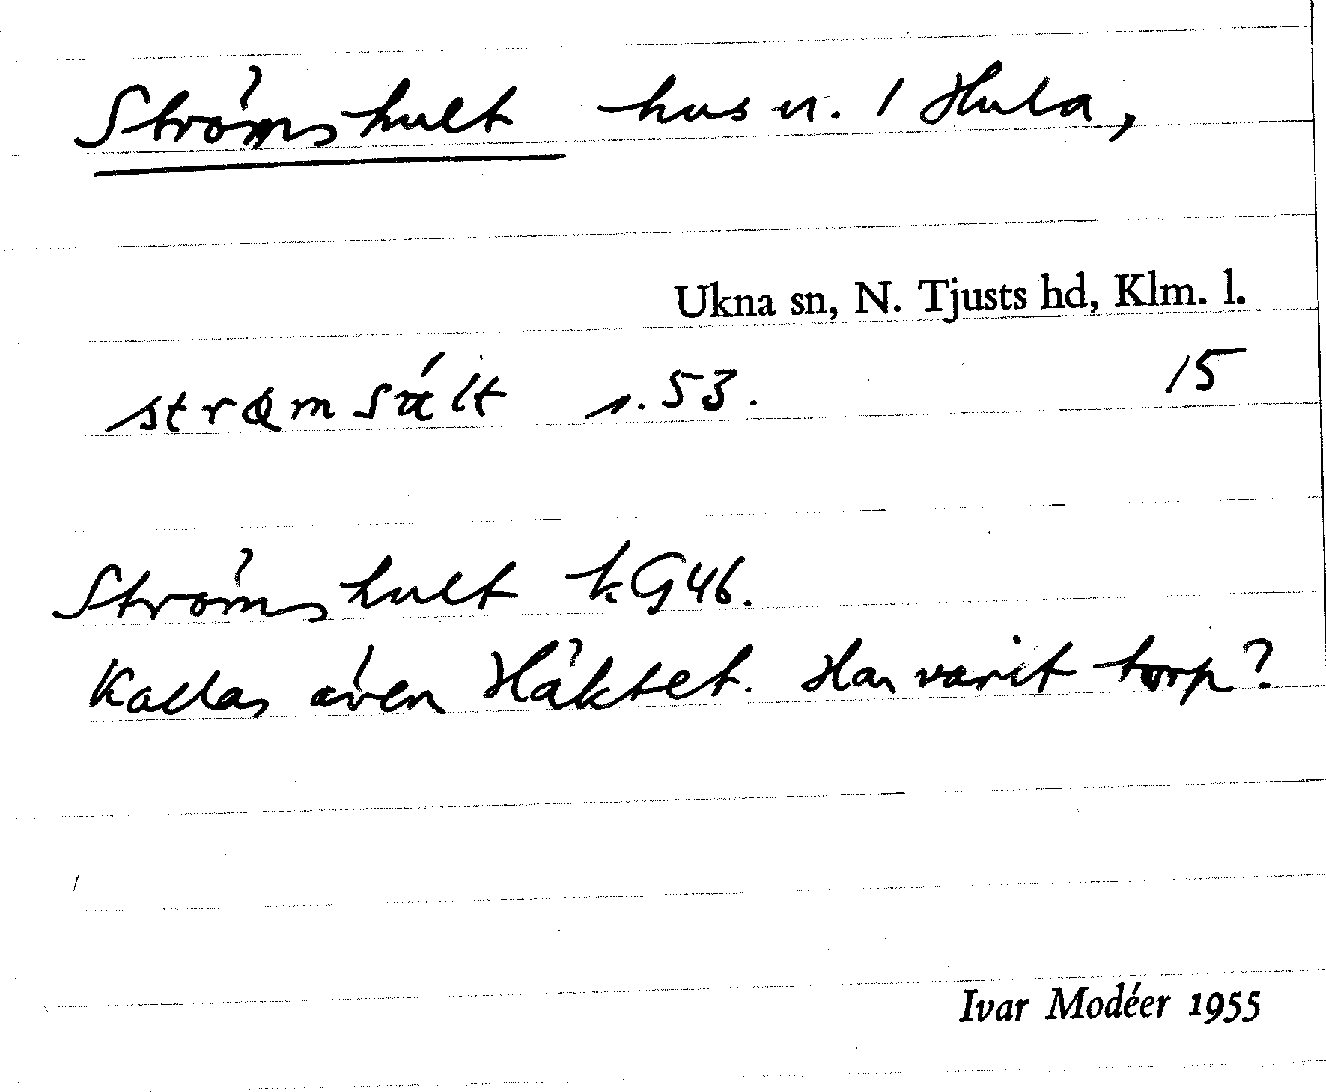 Strömshult hus u. 1 Hula,
Ukna sn, N. Tjusts hd, Klm. l.
s. 53. 15
Strömshult kG46.
Kallas även Häktet. Har varit torp?
Ivar Modéer 1955